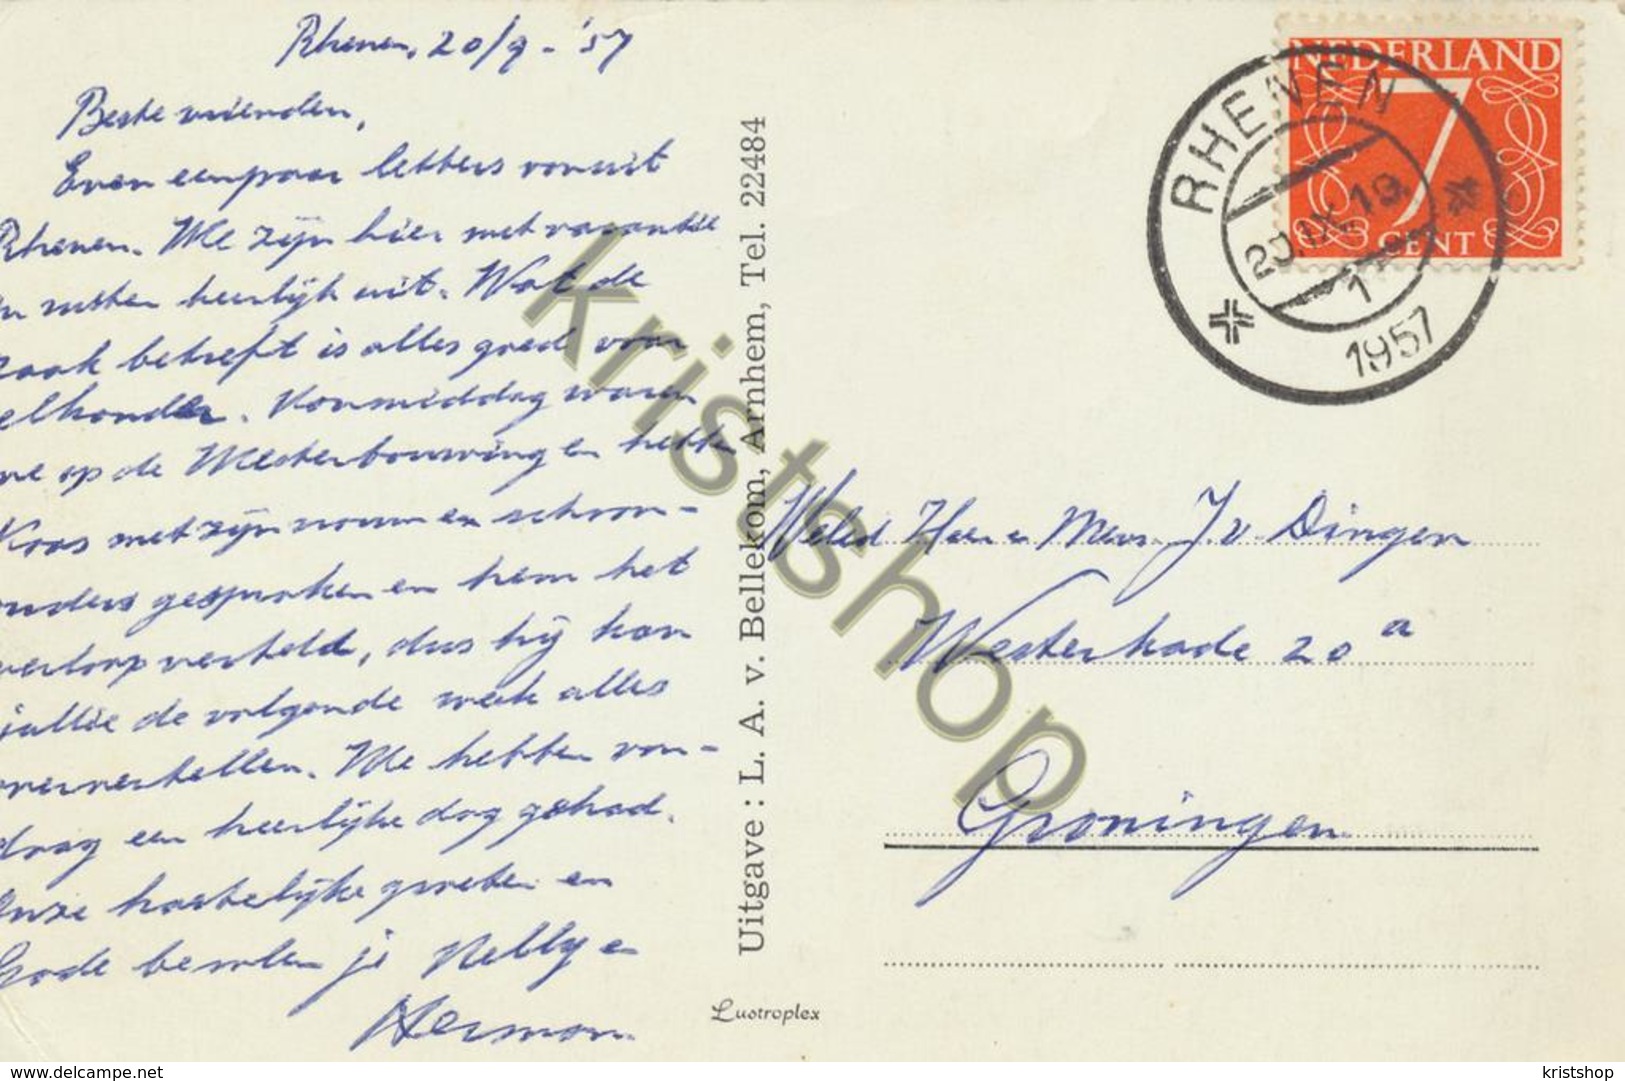 Rhenen, 20/9-'57
Beste vrienden,
Even een paar letters vanuit
Rhenen. We zijn hier met vacantie
en rusten heerlijk uit. Wat de
zaak betreft is alles goed voor
elkander. Vanmiddag waren
we op de Westerbouwing en hebben
Koos met zijn vrouw en schoon-
ouders gesproken en hem het
verloop verteld, dus hij kan
jullie de volgende week alles
oververtellen. We hebben van-
daag een heerlijke dag gehad.
Onze hartelijke groeten en
Gode bevolen je Nelly en
Herman.
Uitgave: L. A. v. Bellekom, Arnhem, Tel. 22484
Lustroplex
NEDERLAND
7
CENT
RHENEN
20.IX.19
1957
Weled Heer en Mevr. J. v. Dingen
Westerkade 20a
Groningen
kristshop
www.delcampe.net
kristshop